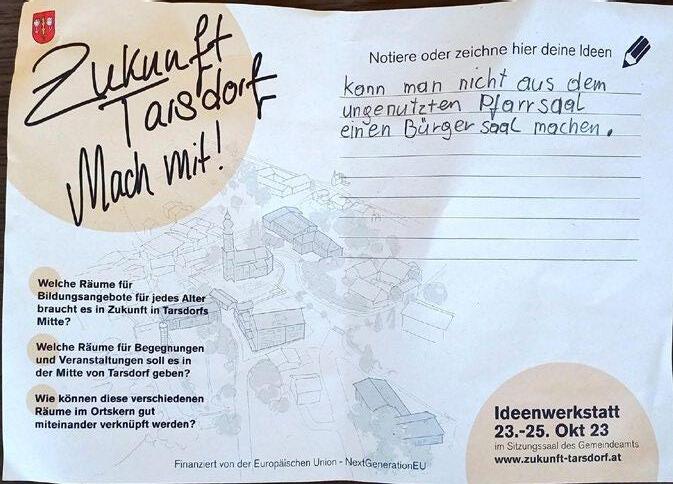 Zukunft
Tarsdorf
Mach mit!
Notiere oder zeichne hier deine Ideen
kann man nicht aus dem
ungenutzten Pfarrsaal
einen Bürgersaal machen.
Welche Räume für
Bildungsangebote für jedes Alter
braucht es in Zukunft in Tarsdorfs
Mitte?
Welche Räume für Begegnungen
und Veranstaltungen soll es in
der Mitte von Tarsdorf geben?
Wie können diese verschiedenen
Räume im Ortskern gut
miteinander verknüpft werden?
Ideenwerkstatt
23.-25. Okt 23
im Sitzungssaal des Gemeindeamts
www.zukunft-tarsdorf.at
Finanziert von der Europäischen Union - NextGenerationEU